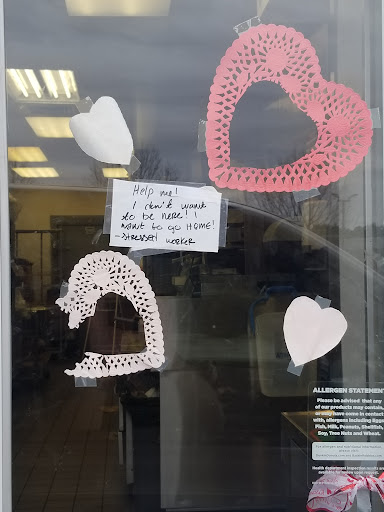 Help me!
I don't want
to be here! I
want to go HOME!
- stressed worker
ALLERGEN STATEMENT
Please be advised that any
of our products may contain,
or may have come in contact
with, allergens including Eggs,
Fish, Milk, Peanuts, Shellfish,
Soy, Tree Nuts and Wheat.
Health department inspection results are
available for review upon request.